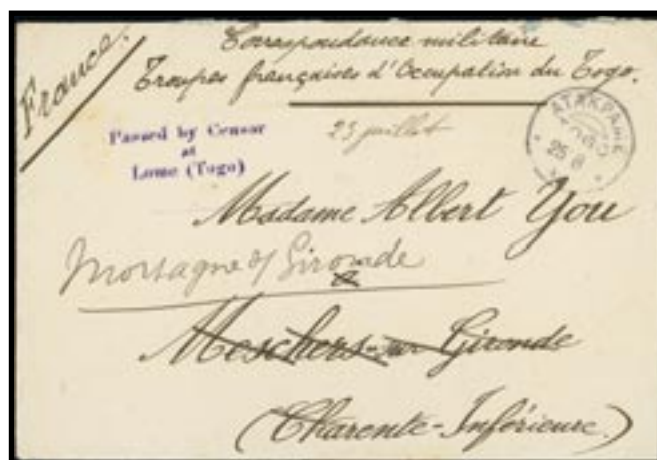 France.
Correspondance militaire
Troupes françaises d'Occupation du Togo.
Passed by Censor
at
Lome (Togo)
23 juillet
ATAKPAME
TOGO
25 8
Madame Albert You
Mortagne s/ Gironde
Meschers-sur-Gironde
(Charente-Inférieure.)